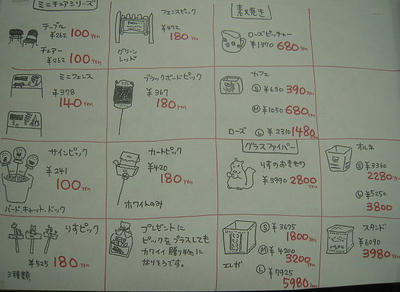 ミニチュアシリーズ
テーブル
¥262 100 YEN
チェアー
¥262 100 YEN
フェンスピック
¥472
180 YEN
グリーン
レッド
素焼き
ローズピッチャー
¥1370 680 YEN
ミニフェンス
¥378
140 YEN
ブラックボードピック
¥367
180 YEN
カフェ
S ¥630 390 YEN
M ¥1050 680 YEN
ローズ L ¥2310 1480 YEN
サインピック
¥241
100 YEN
バード、キャット、ドック
カートピック
¥420
180 YEN
ホワイトのみ
グラスファイバー
りすのおきもの
¥3990 2800 YEN
オルネ
S ¥3360
2280 YEN
L ¥5250
3800 YEN
りすピック
¥525 180 YEN
3種類
プレゼントに
ピックをプラスしても
カワイイ贈り物に
なりそうです。
S ¥3675
1800 YEN
M ¥4200
3200 YEN
エレガ L ¥7925
5980 YEN
スタンド
¥6090
3980 YEN